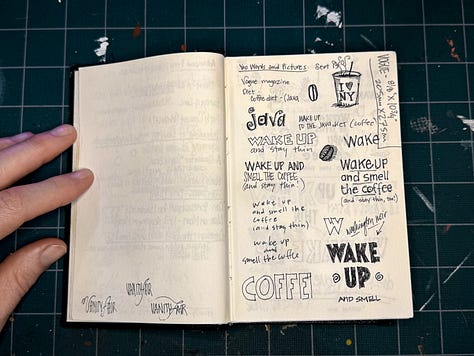 Two Words and Pictures
Vogue magazine
Diet -
Coffee diet - (Java
I ♥
NY
VOGUE -
java
WAKE UP
TO THE JAVA DIET (coffee)
WAKE UP
and stay thin
Wake
WAKE UP AND
SMELL THE COFFEE
(and stay thin!)
Wake up
and smell
the coffee
(and stay thin, too!)
wake up
and smell the
coffee
(and stay thin)
W
wake up
and
smell the coffee
WAKE
UP
AND SMELL
COFFEE
VANITY FAIR
VANITY FAIR
VANITY FAIR